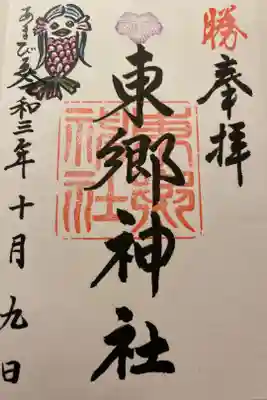 勝
奉拝
東郷神社
東郷神社
令和三年十月九日
あまびゑ